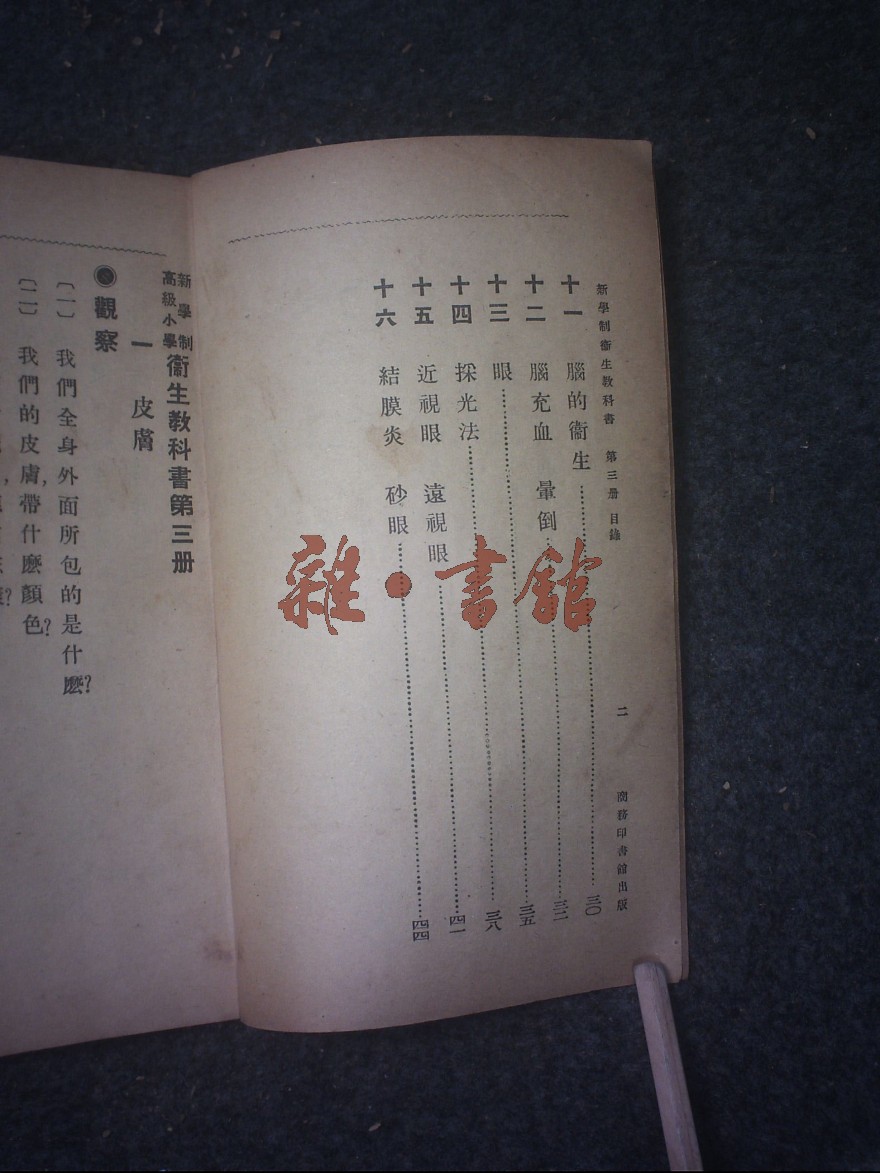 新學制衞生教科書 第三册 目錄 二 商務印書館出版
十一 腦的衞生……三〇
十二 腦充血 暈倒……三二
十三 眼……三五
十四 採光法……三八
十五 近視眼 遠視眼……四一
十六 結膜炎 砂眼……四四
雜·書館
新學制
高級小學
衞生教科書第三册
一 皮膚
◉觀察
〔一〕 我們全身外面所包的是什麽?
〔二〕 我們的皮膚,帶什麽顏色?